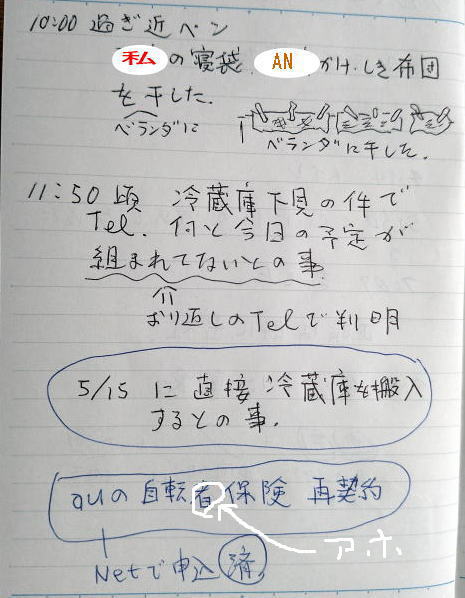 10:00 過ぎ近ペン
私の寝袋、ANかけ、しき布団
を干した.
ベランダに
ベランダに干した.
11:50頃 冷蔵庫下見の件で
Tel. 何と今日の予定が
組まれてないとの事.
おり返しのTelで判明
5/15 に直接冷蔵庫を搬入
するとの事.
auの自転者保険 再契約
アホ
Netで申込済